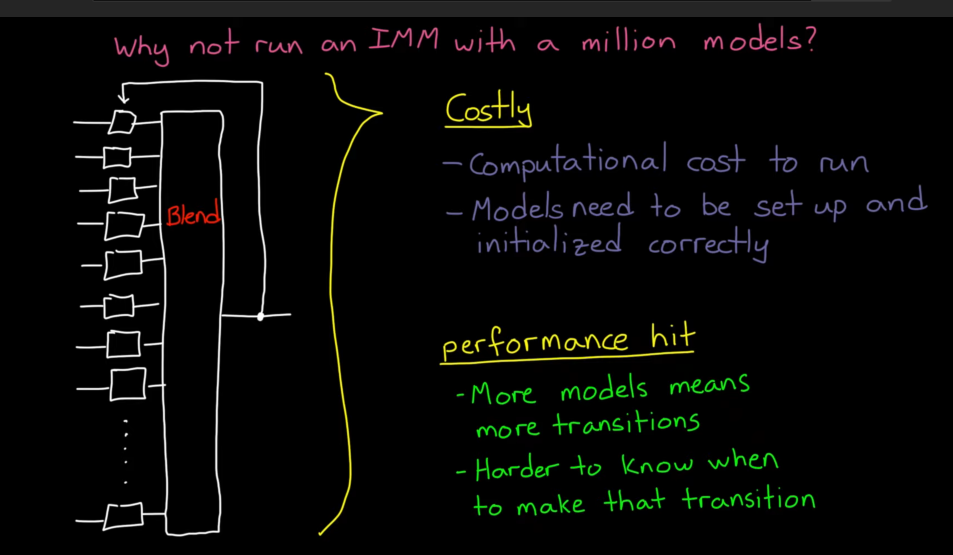 Why not run an IMM with a million models?
Blend
Costly
- Computational cost to run
- Models need to be set up and
initialized correctly
performance hit
- More models means
more transitions
- Harder to know when
to make that transition